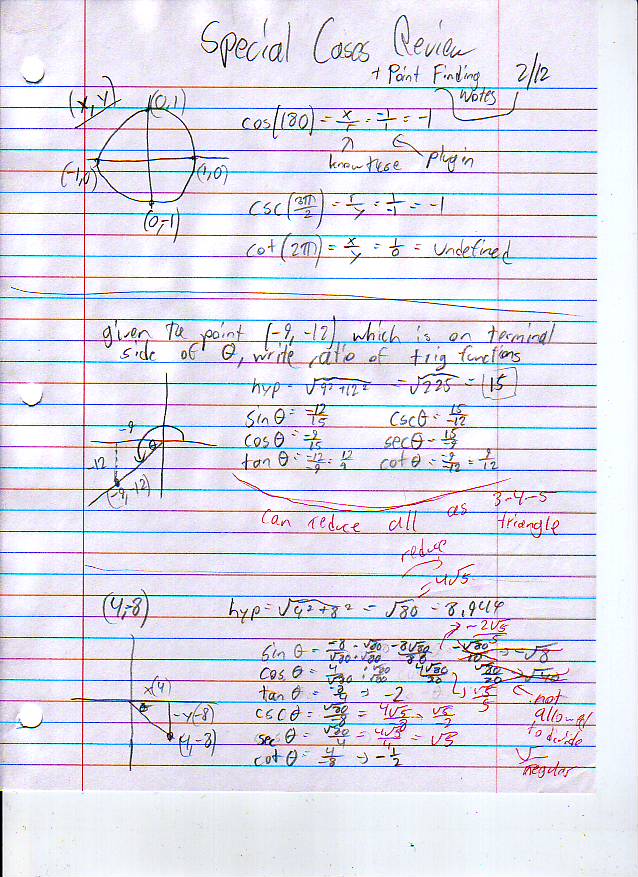 Special Cases Review
+ Point Finding Notes
2/12
(x, y)
(0,1)
(-1,0)
(1,0)
(0,-1)
cos(180) = x/r = -1/1 = -1
know these
plug in
csc(3π/2) = r/y = 1/-1 = -1
cot(2π) = x/y = 1/0 = undefined
given the point (-9, -12) which is on terminal
side of θ, write ratio of trig functions
hyp = √9²+12² = √225 = 15
sin θ = -12/15
csc θ = 15/-12
cos θ = -9/15
sec θ = 15/-9
tan θ = -12/-9 = 12/9
cot θ = -9/-12 = 9/12
-9
θ
-12
(-9, -12)
can reduce all as 3-4-5 triangle
reduce
= 4√5
(4,-8)
hyp = √4²+8² = √80 = 8.944
→ -2√5/5
sin θ = -8/√80 · √80/√80 -8√80/80 -√80/10 → -√8
cos θ = 4/√80 · √80/√80 4√80/80 √80/20 √40
√5/5
tan θ = -8/4 → -2
csc θ = √80/-8 = 4√5/-8 = √5/-2
sec θ = √80/4 = 4√5/4 = √5
cot θ = 4/-8 → -1/2
x(4)
θ
-y(-8)
(4,-8)
not
allowed
to divide
√
regular